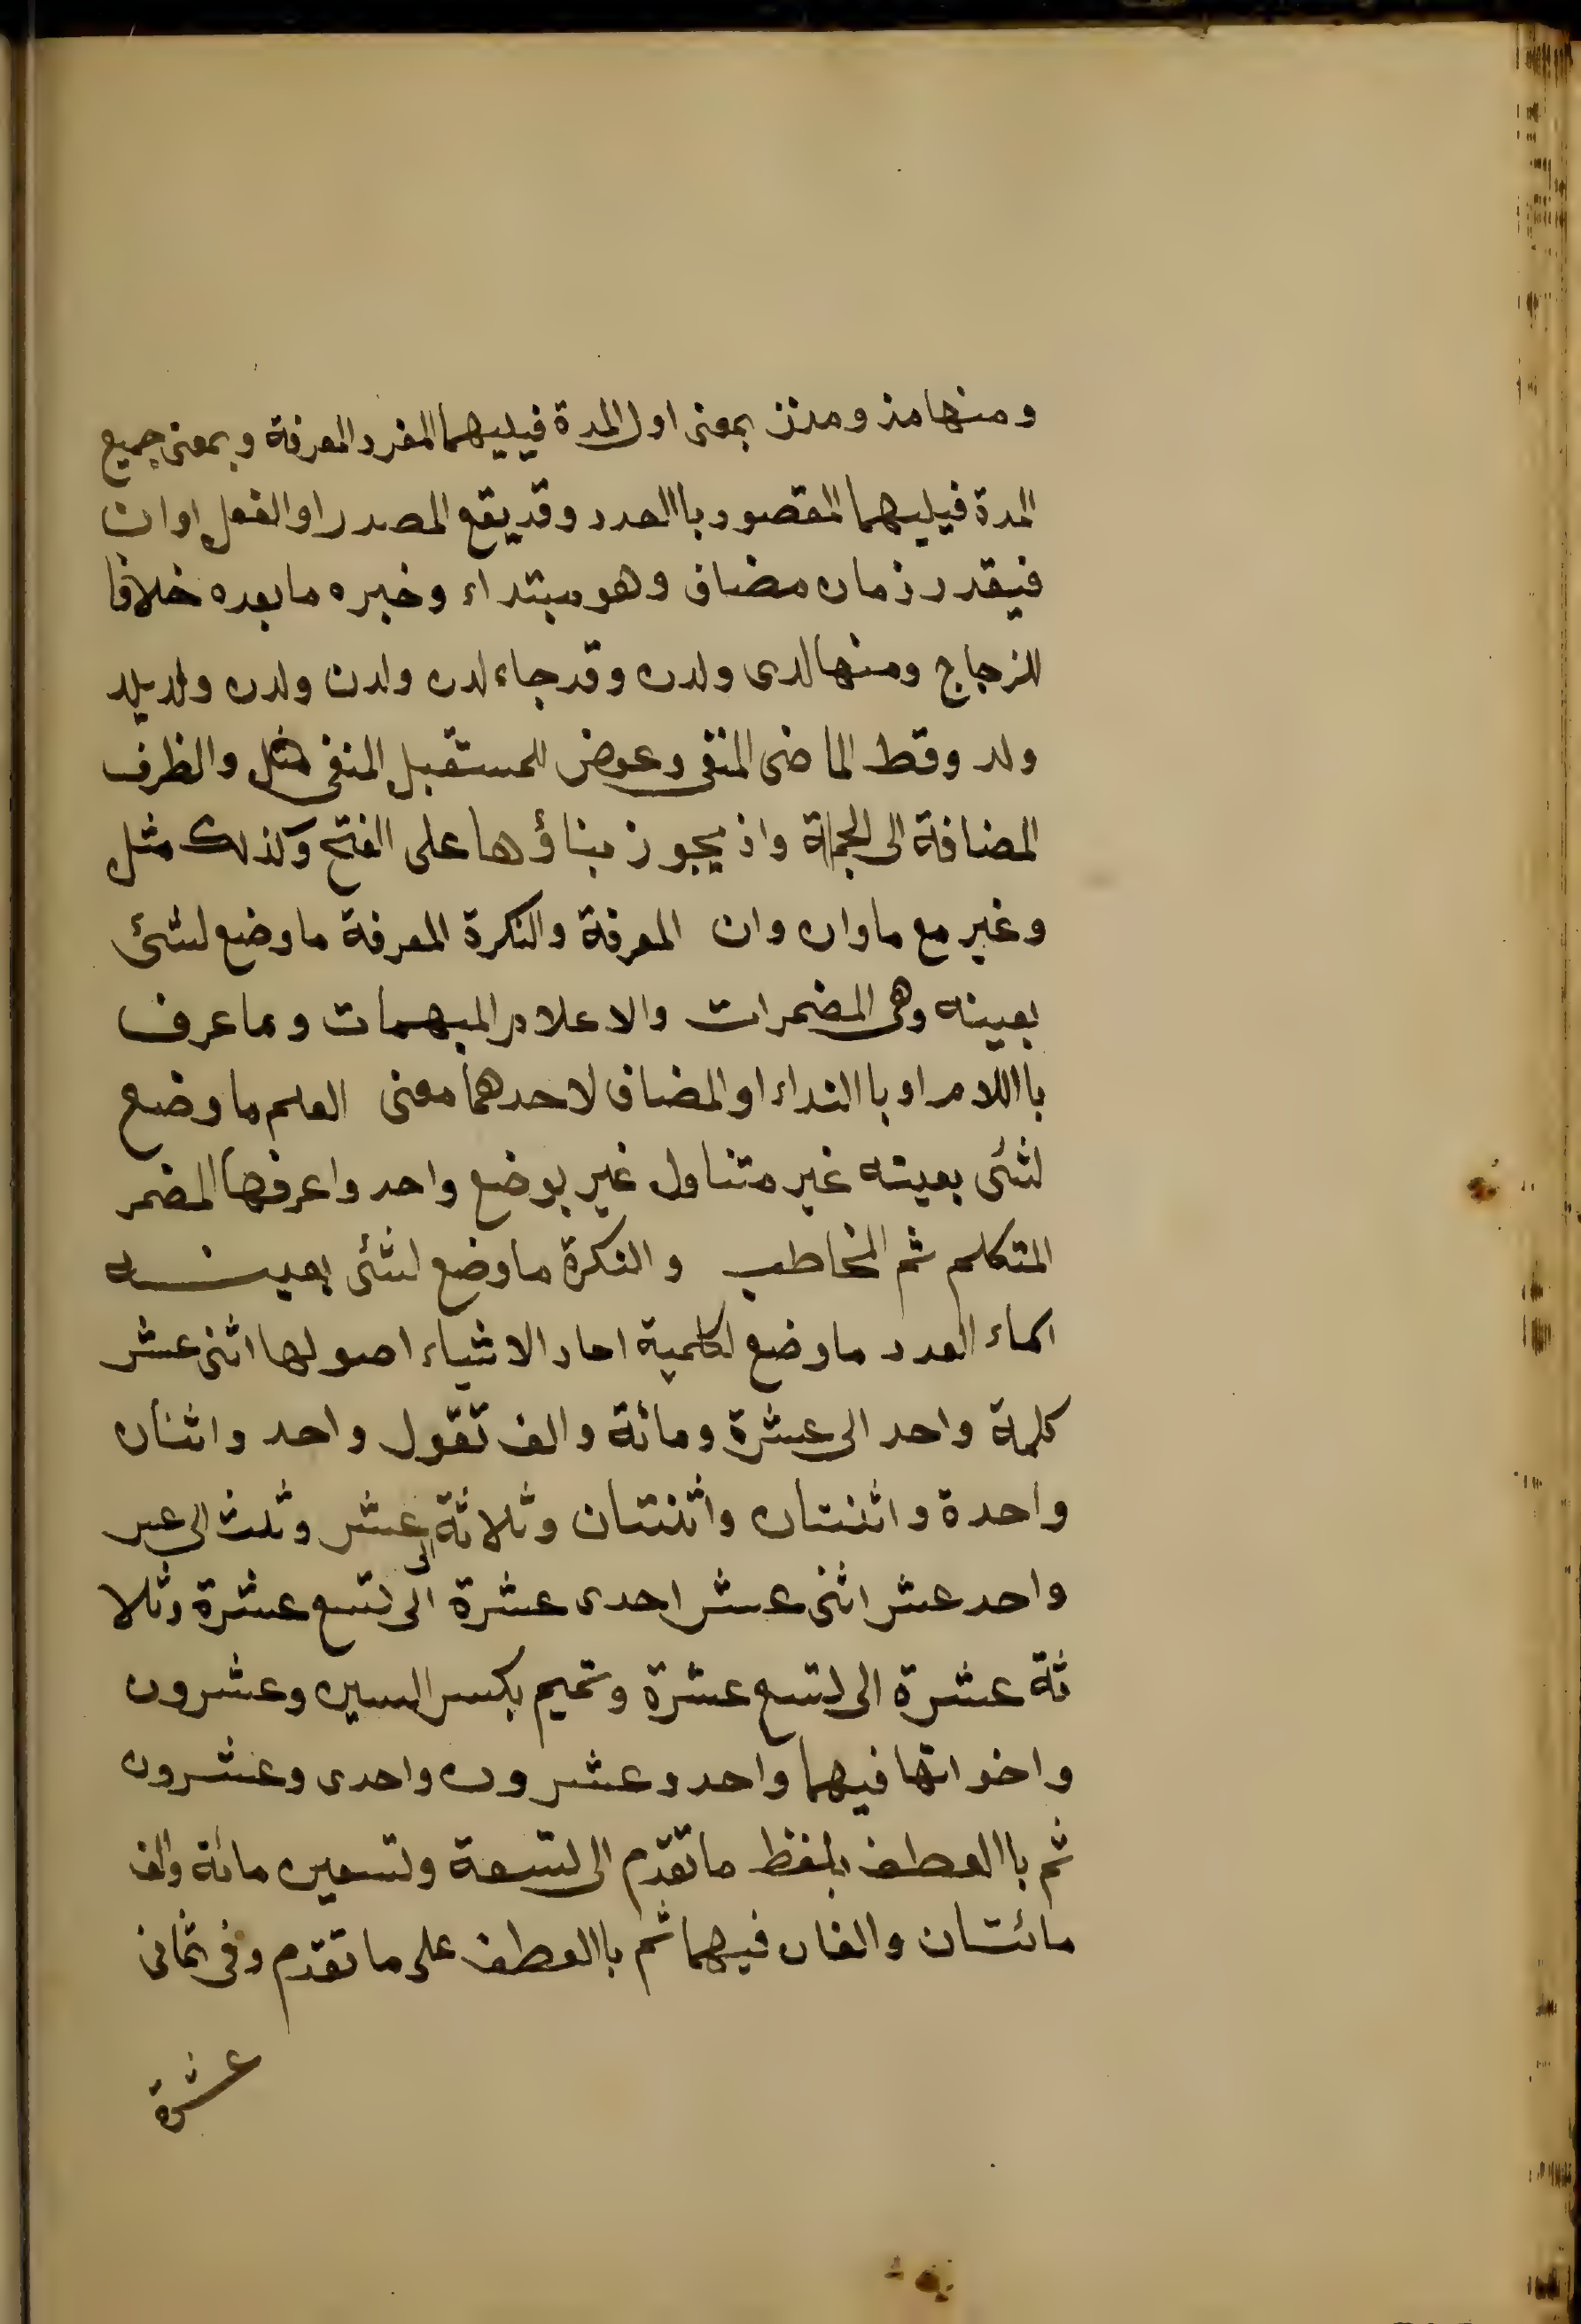 ومنها مذ ومنذ بمعنى اول المدة فيليهما المفرد المعرفة وبمعنى جميع
المدة فيليهما المقصود باالعدد وقد يقع المصدر او الفعل او ان
فيقدر زمان مضاف وهو مبتداء وخبره ما بعده خلافا
للزجاج ومنها لدى ولدن وقد جاء لدن ولدن ولدن ولد
ولد وقط الماضى المنفى وعوض للمستقبل المنفى والظرف
المضافة الى الجملة واذ يجوز بناؤها على الفتح وكذلك مثل
وغير مع ما وان وان المعرفة والنكرة المعرفة ما وضع لشئ
بعينه وهى المضمرات والاعلام المبهمات وما عرف
باللام او باالنداء او المضاف لاحدهما معنى العلم ما وضع
لشئى بعينه غير متناول غير بوضع واحد واعرفها المضمر
المتكلم ثم المخاطب والنكرة ما وضع لشئى بعينه
اسماء العدد ما وضع لكلمية احاد الاشياء اصولها اثنى عشر
كلمة واحد الى عشرة ومائة والف تقول واحد واثنان
واحدة واثنتان واثنتان وثلاثة الى عشر وثلث الى
واحد عشر اثنى عشر احدى عشرة الى تسع عشرة وثلا
ثة عشرة الى تسع عشرة وتميم بكسر السين وعشرون
واخواتها فيهما واحد وعشرون واحدى وعشرون
ثم باالعطف بلفظ ما تقدم الى تسعة وتسعين مائة والف
مائتان والفان فيهما ثم باالعطف على ما تقدم وفى ثمانى
عشرة